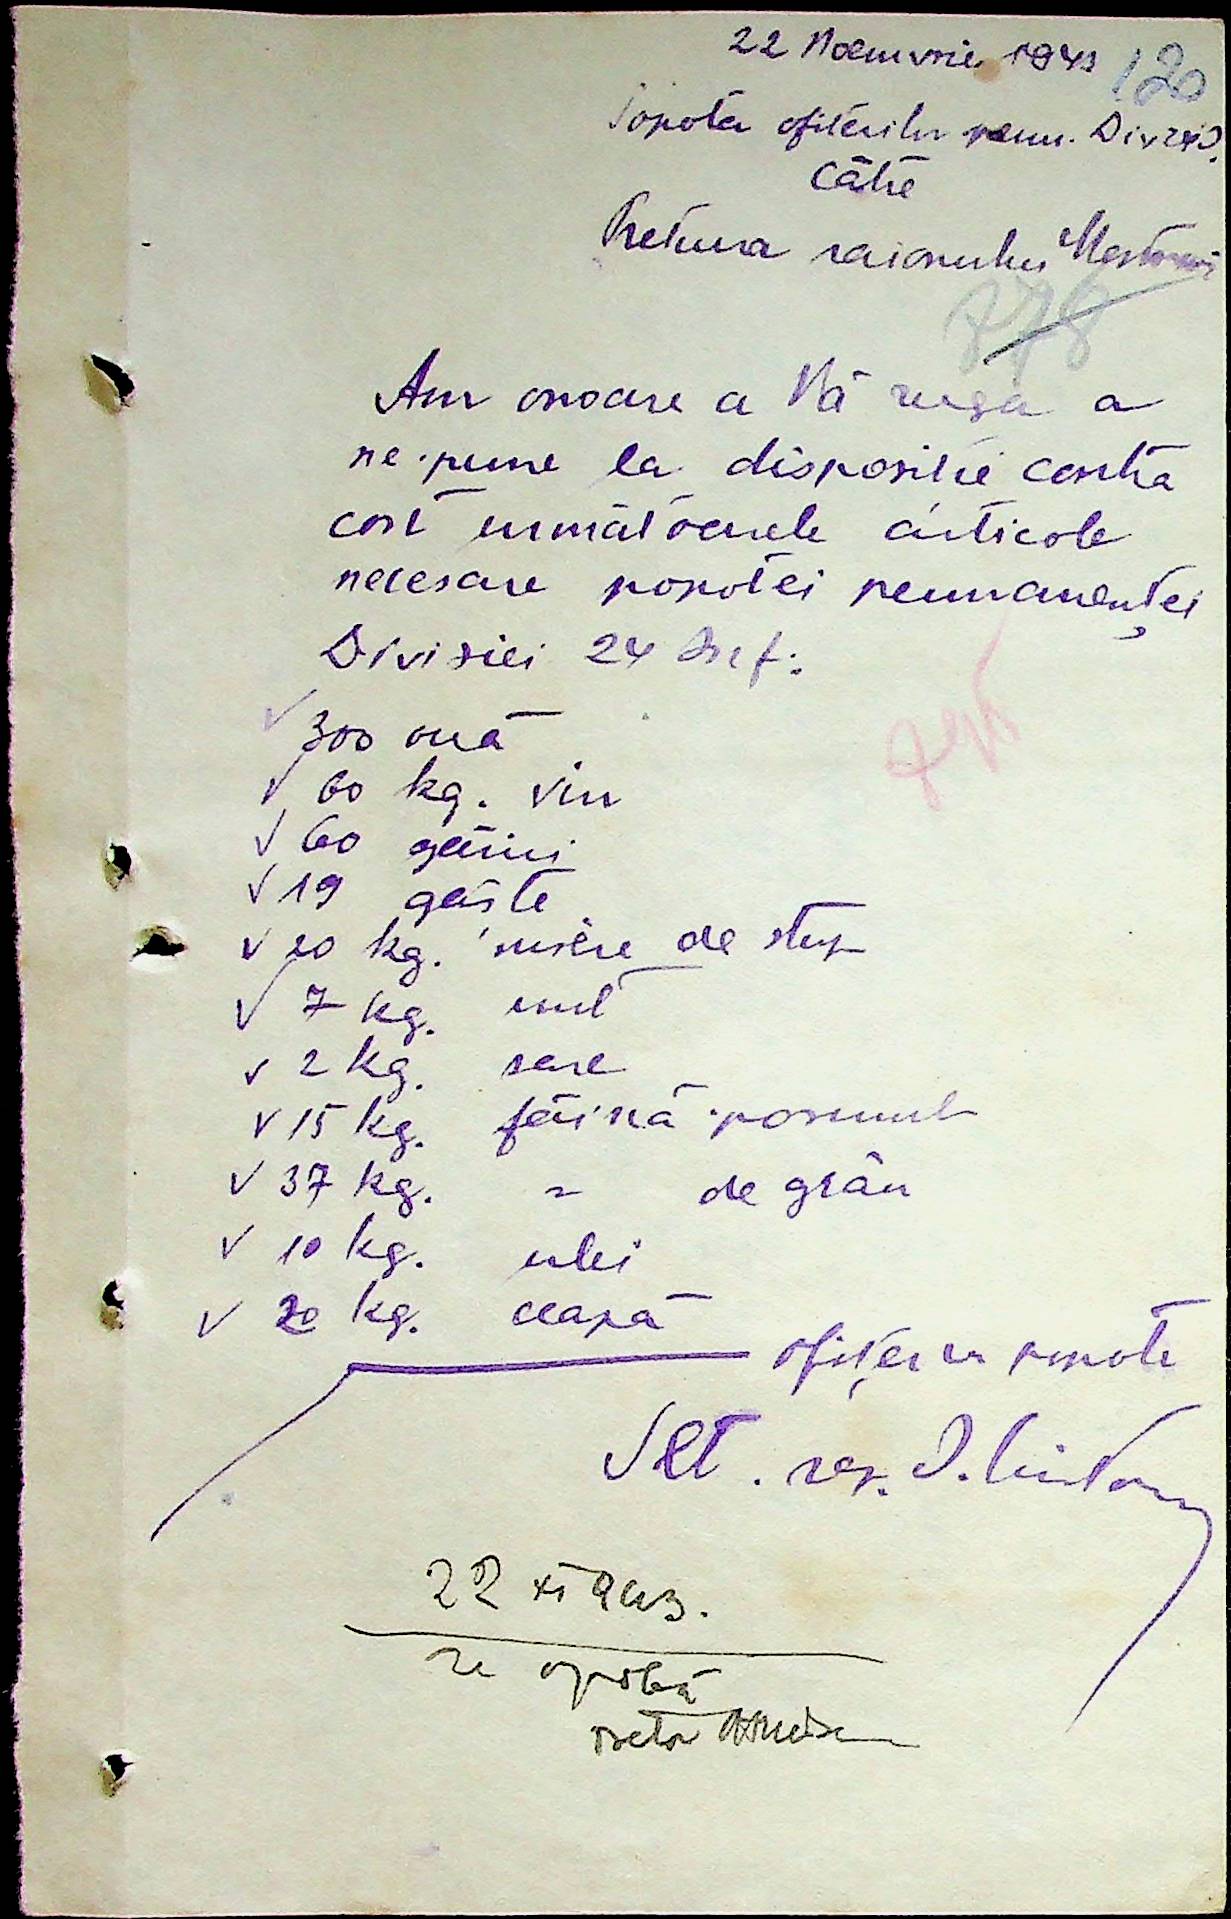 22 Noemvrie 1943
120
Popota ofiterilor perm. Div 24 D.
Către
Pretura raionului
878
Am onoare a Vă ruga a
ne pune la dispositie contra
cost următoarele articole
necesare popotei permanenței
Diviziei 24 Inf:
✓ 300 ouă
✓ 60 kg. vin
✓ 60 găini
✓ 19 gâste
✓ 20 kg. miere de stup
✓ 7 kg. unt
✓ 2 kg. sare
✓ 15 kg. făină porumb
✓ 37 kg. " de grâu
✓ 10 kg. ulei
✓ 20 kg. ceapă
ofițer cu popota
Slt. rez. I.
22 XI 943.
se aprobă
Pretor